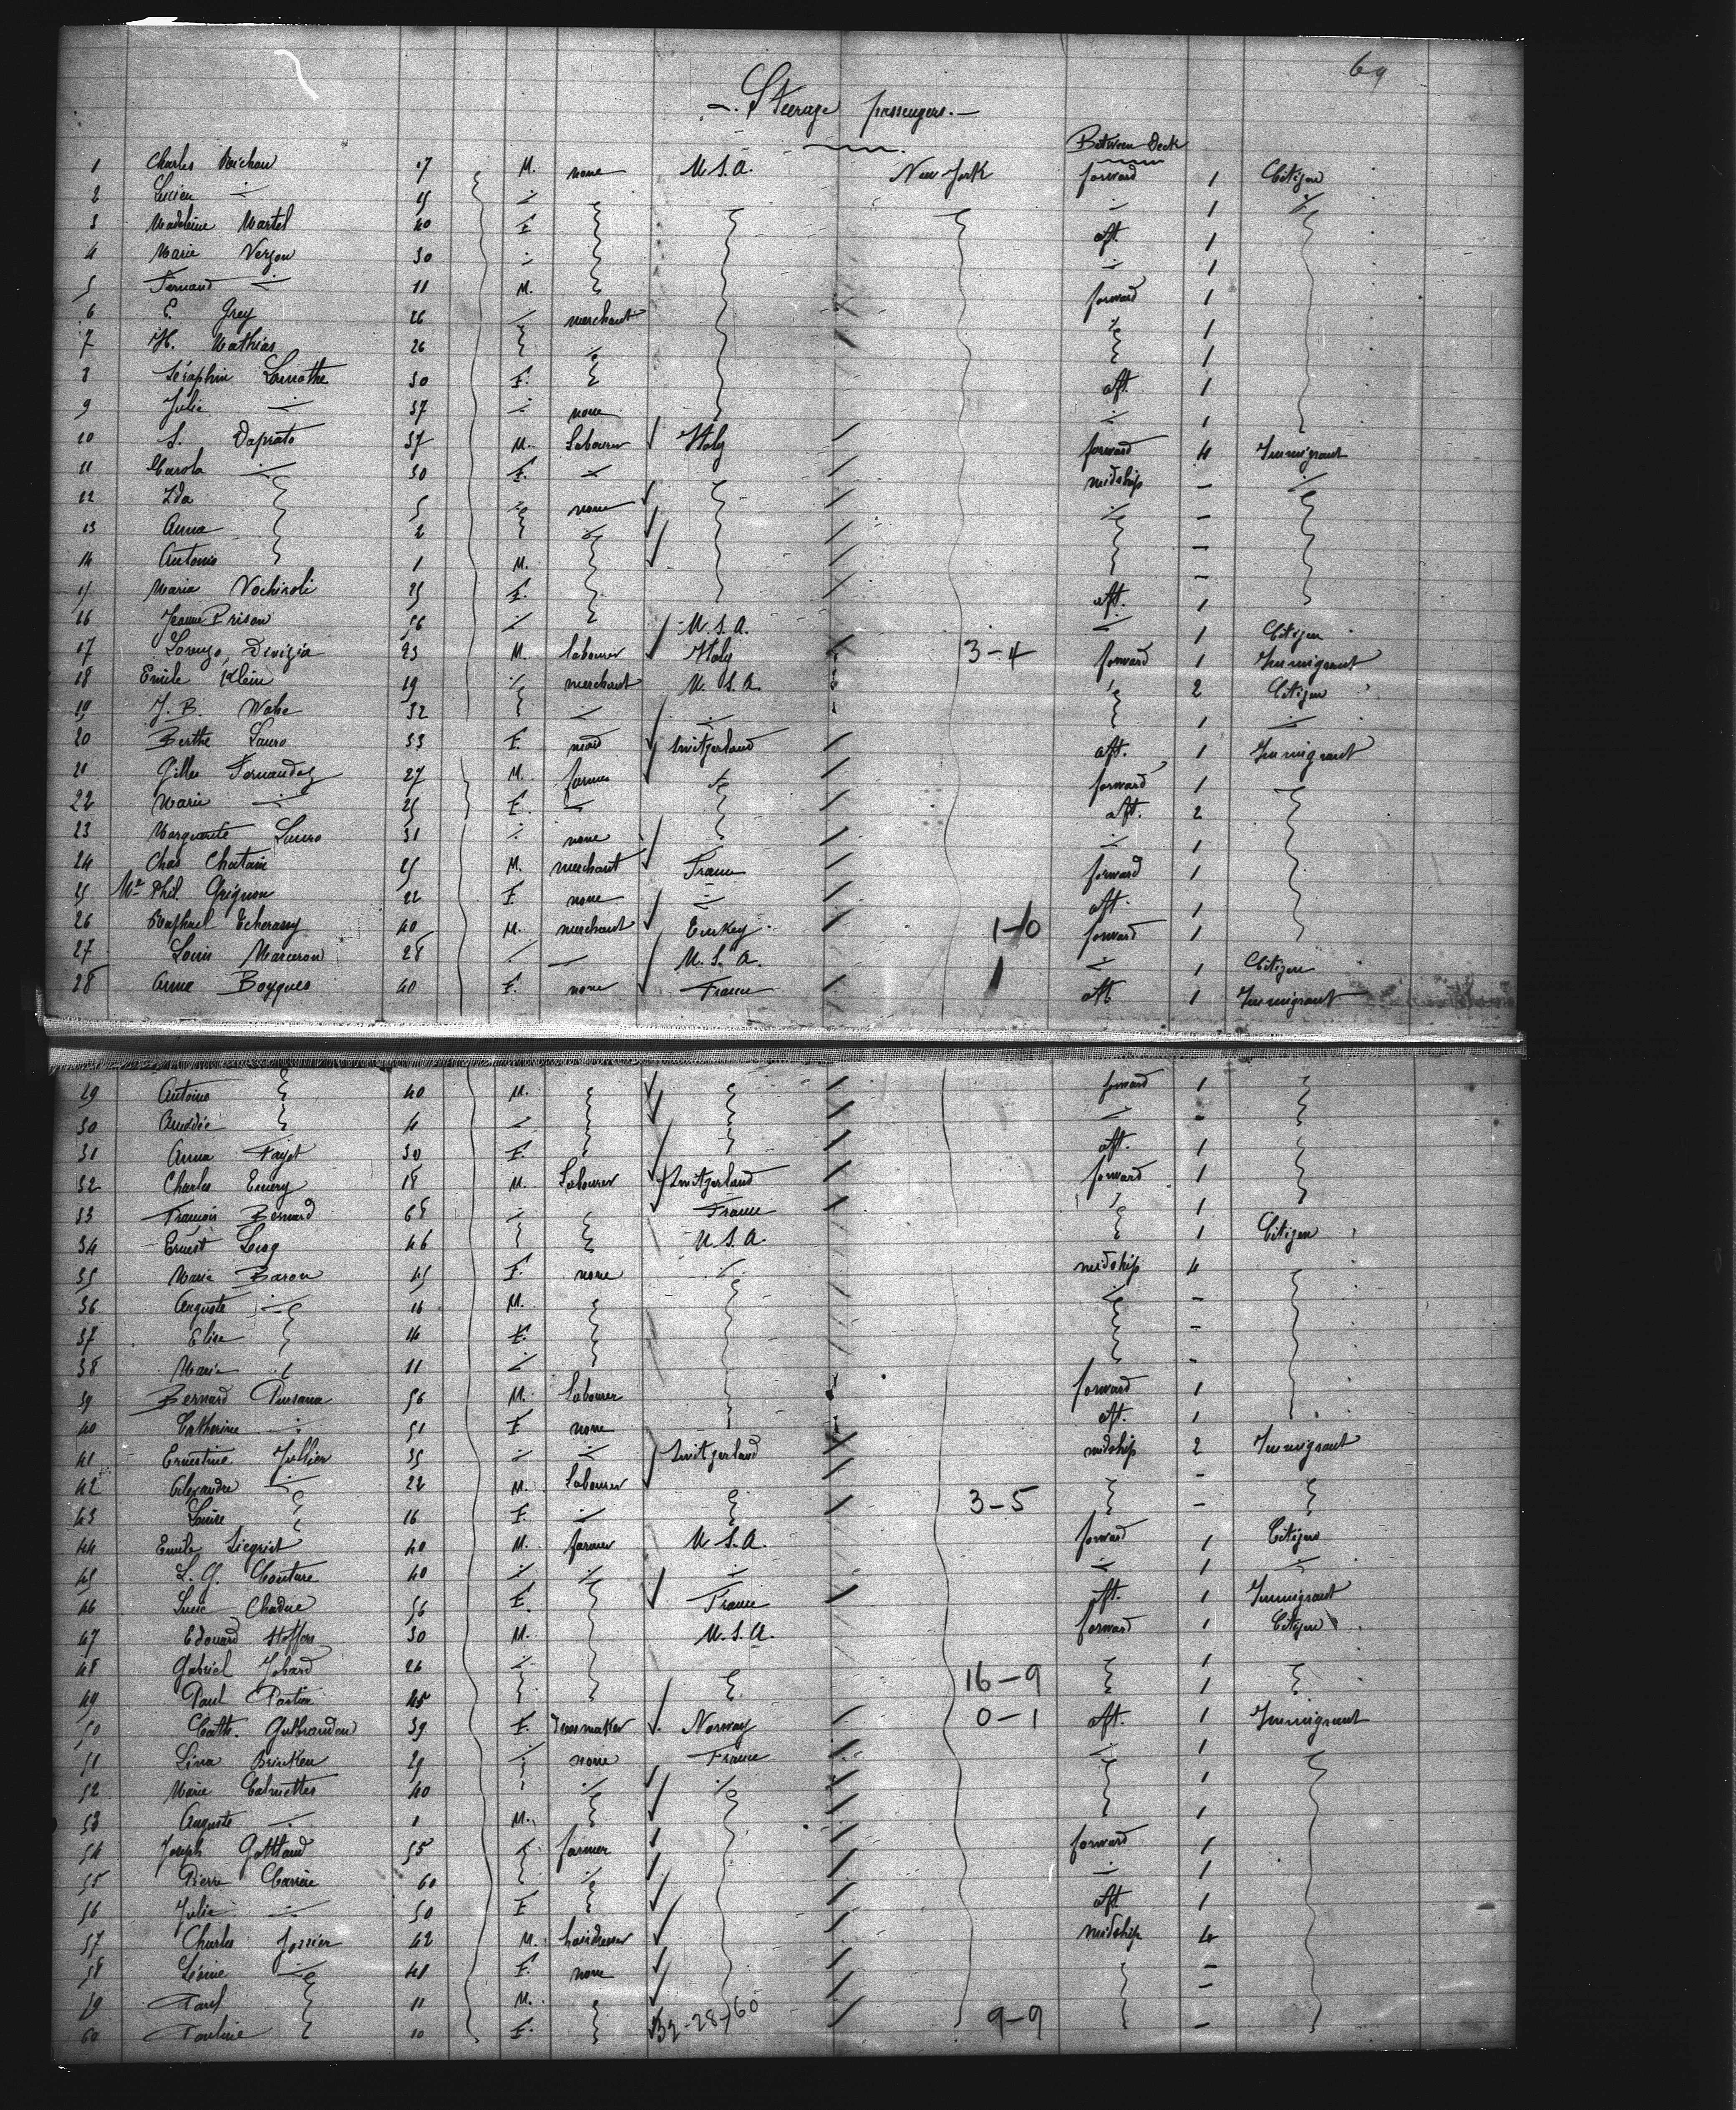 69
Steerage passengers.
Between Deck
1 Charles 17 M. none U.S.A. New York forward 1 Citizen
2 Lucien 15 1
3 Madeleine Martel 40 F. aft. 1
4 Marie Verzou 30 1
5 Fernand 11 M. forward 1
6 E. Grey 26 merchant 1
7 H. Mathias 26 1
8 Séraphin Lamothe 30 F. aft. 1
9 Julie 37 none 1
10 S. Daprato 37 M. Labourer Italy forward 4 Immigrant
11 Carola 30 F. midship -
12 Ida 5 none -
13 Anna 2 -
14 Antonio 1 M. -
15 Maria 25 F. aft. 1
16 Jeanne Prison 56 U.S.A. 1 Citizen
17 Lorenzo Divizia 23 M. labourer Italy 3-4 forward 1 Immigrant
18 Emile Klein 19 merchant U.S.A. 2 Citizen
19 J. B. 32 1
20 Berthe Lauro 33 F. maid Switzerland aft. 1 Immigrant
21 Gilles Fernandez 27 M. farmer forward 1
22 Marie 25 F. aft. 2
23 Marguerite 31 none 1
24 Chas Chatain 25 M. merchant France forward 1
25 Phil. Grignon 22 F. none aft. 1
26 Raphael 40 M. merchant Turkey 1-0 forward 1
27 Louis Marceron 28 U.S.A. 1 Citizen
28 Anna 40 F. none France aft. 1 Immigrant
29 Antoine 40 M. forward 1
30 Amédée 4 -
31 Anna Fayet 30 F. aft. 1
32 Charles Emery 18 M. Labourer Switzerland forward 1
33 François Bernard 65 France 1
34 Ernest 46 U.S.A. 1 Citizen
35 Marie Baron 45 F. none midship 4
36 Auguste 16 M. -
37 Elise 14 F. -
38 Marie 11 -
39 Bernard 56 M. Labourer forward 1
40 Catherine 51 F. none aft. 1
41 Ernestine Jullier 35 Switzerland midship 2 Immigrant
42 Alexandre 22 M. Labourer -
43 Louise 16 F. 3-5 -
44 Emile Siegrist 40 M. farmer U.S.A. forward 1 Citizen
45 L. G. Couture 40 1
46 Chadue 56 F. France aft. 1 Immigrant
47 Edouard 30 M. U.S.A. forward 1 Citizen
48 Gabriel Jobard 26 16-9 1
49 Paul 45 1
50 Cath. 39 F. Dressmaker Norway 0-1 aft. 1 Immigrant
51 Lina Brinken 29 none France 1
52 Marie Calmettes 40 1
53 Auguste 1 M. 1
54 Joseph 55 farmer forward 1
55 Pierre Carrère 60 1
56 Julie 50 F. aft. 1
57 Charles 42 M. hairdresser midship 4
58 Léonie 41 F. none -
59 Paul 11 M. -
60 Pauline 10 F. 32-28-60 9-9 -